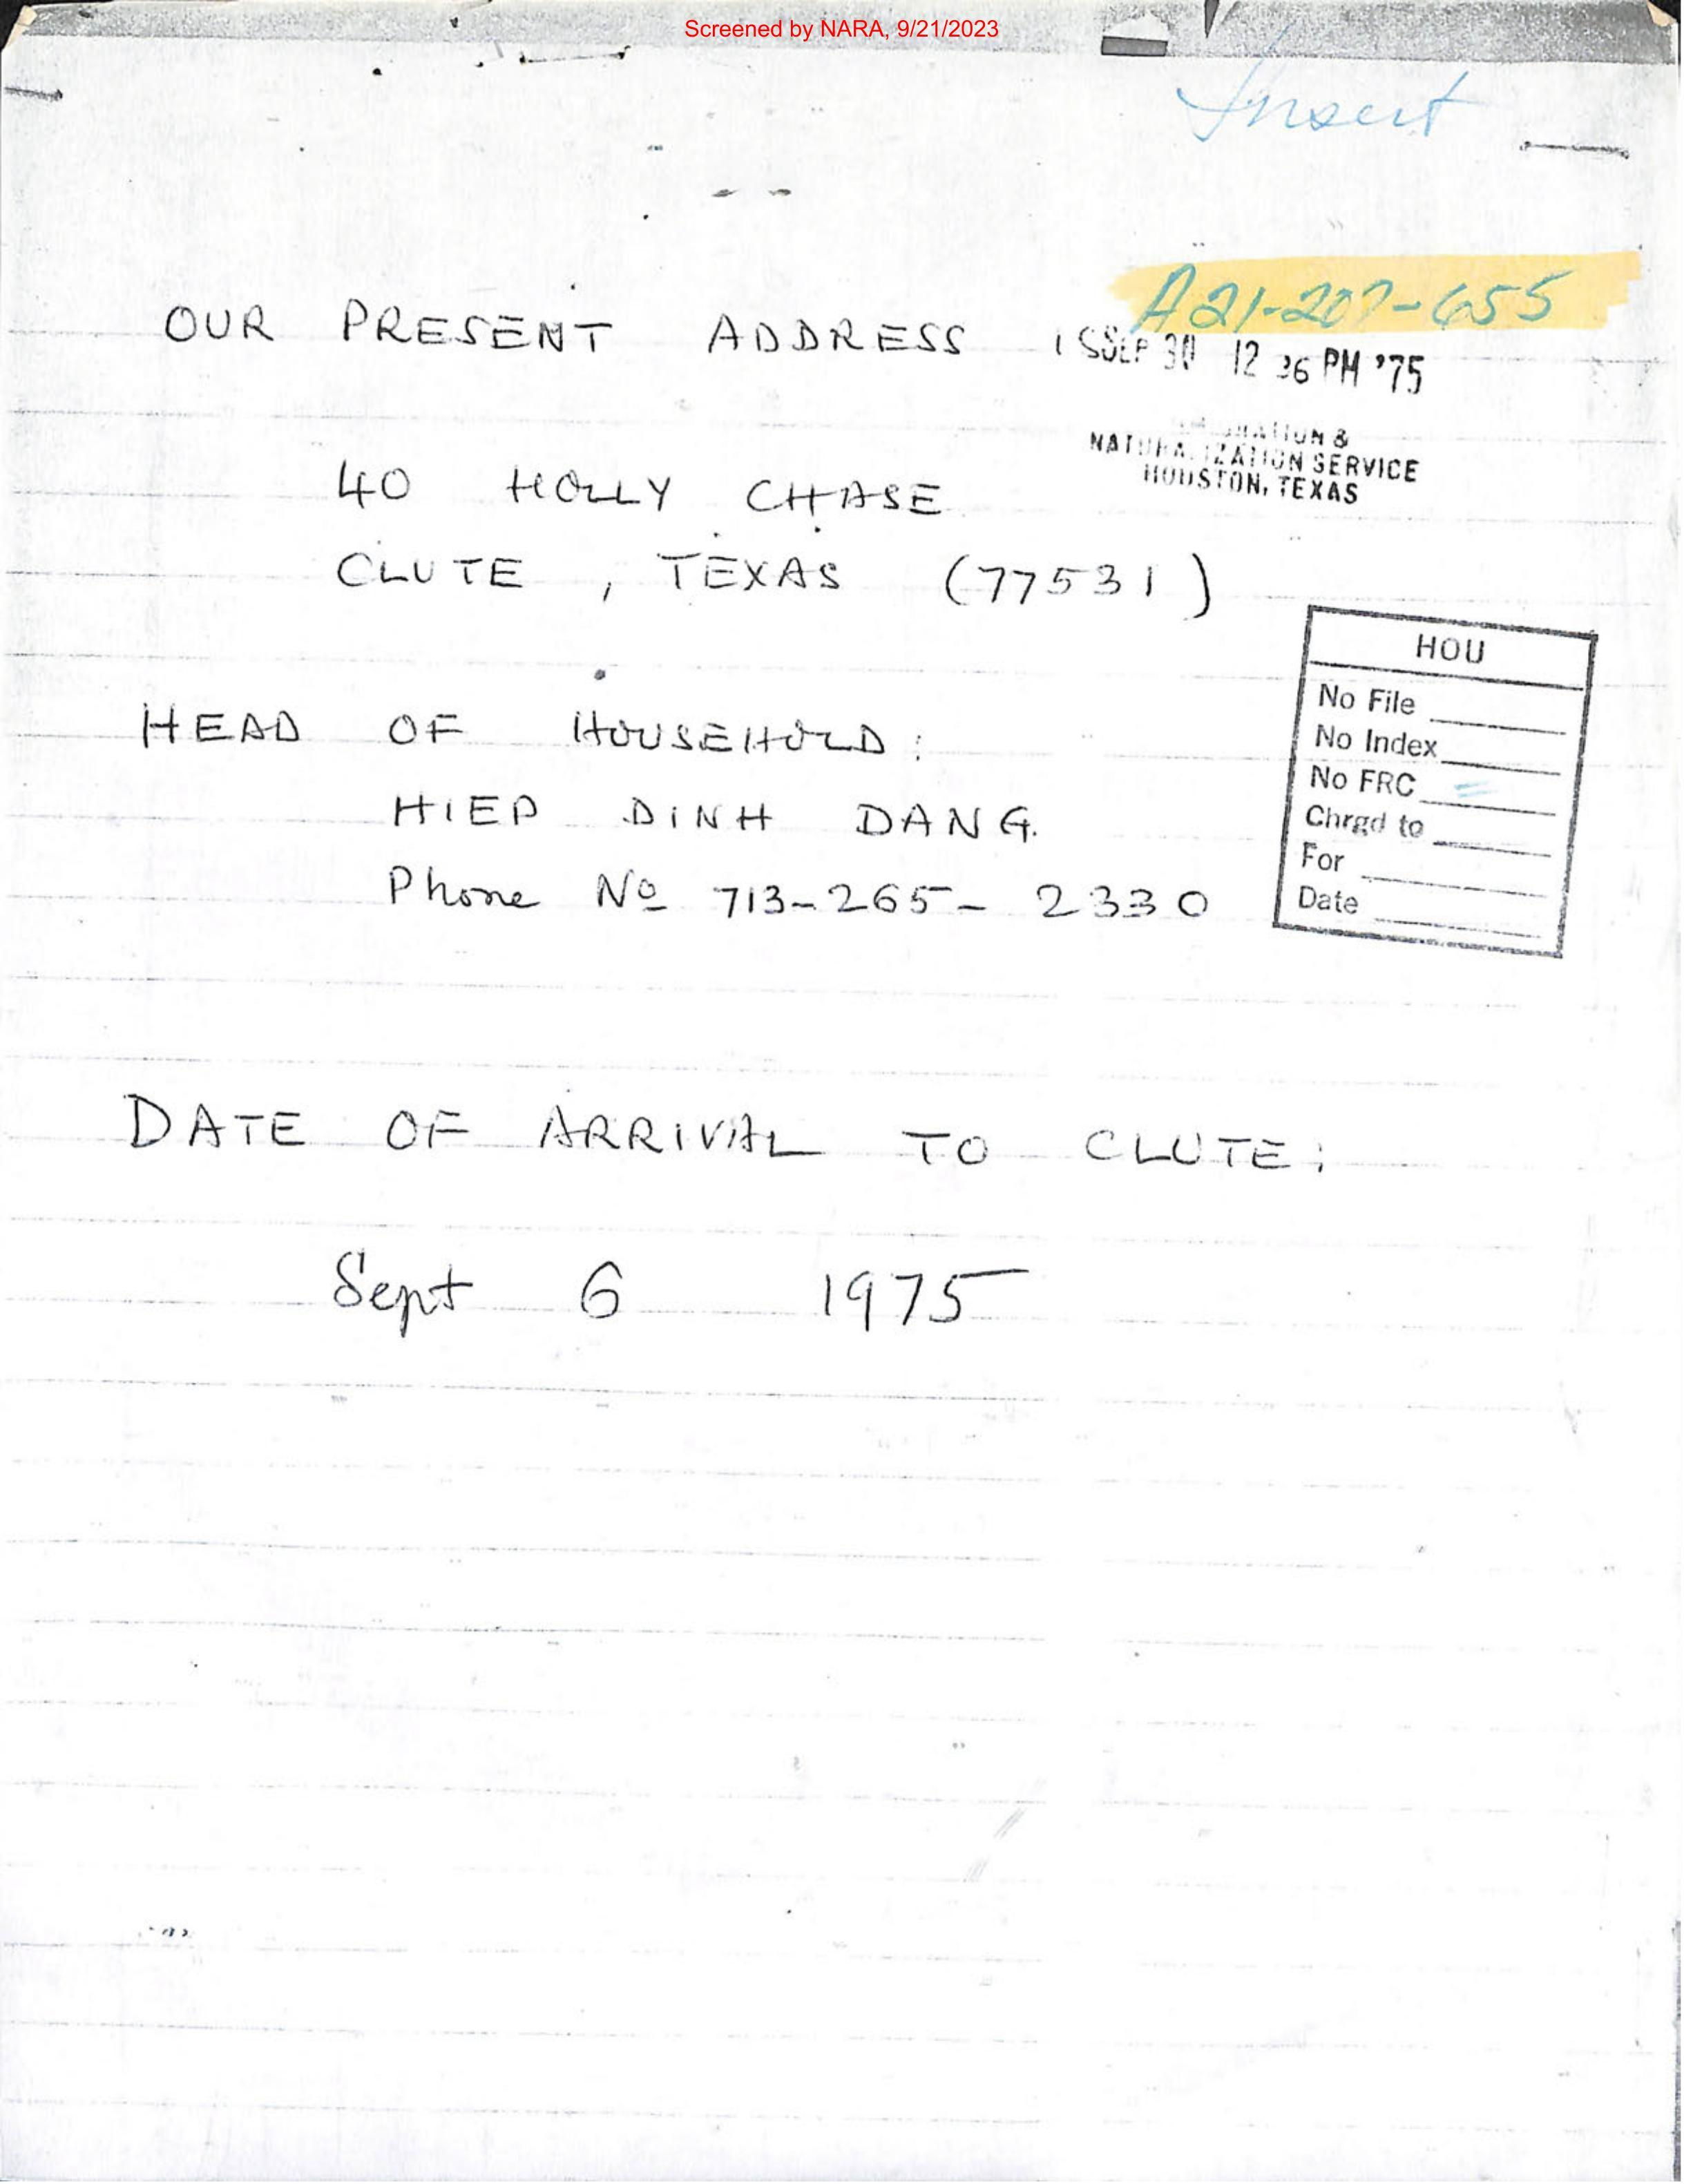 Screened by NARA, 9/21/2023
Insert
A21-207-655
OUR PRESENT ADDRESS IS
SEP 30 12 36 PM '75
&
NATURALIZATION SERVICE
HOUSTON, TEXAS
40 HOLLY CHASE
CLUTE, TEXAS (77531)
HOU
No File
No Index
No FRC
Chrgd to
For
Date
HEAD OF HOUSEHOLD:
HIEP DINH DANG.
Phone Nº 713-265-2330
DATE OF ARRIVAL TO CLUTE:
Sept 6 1975